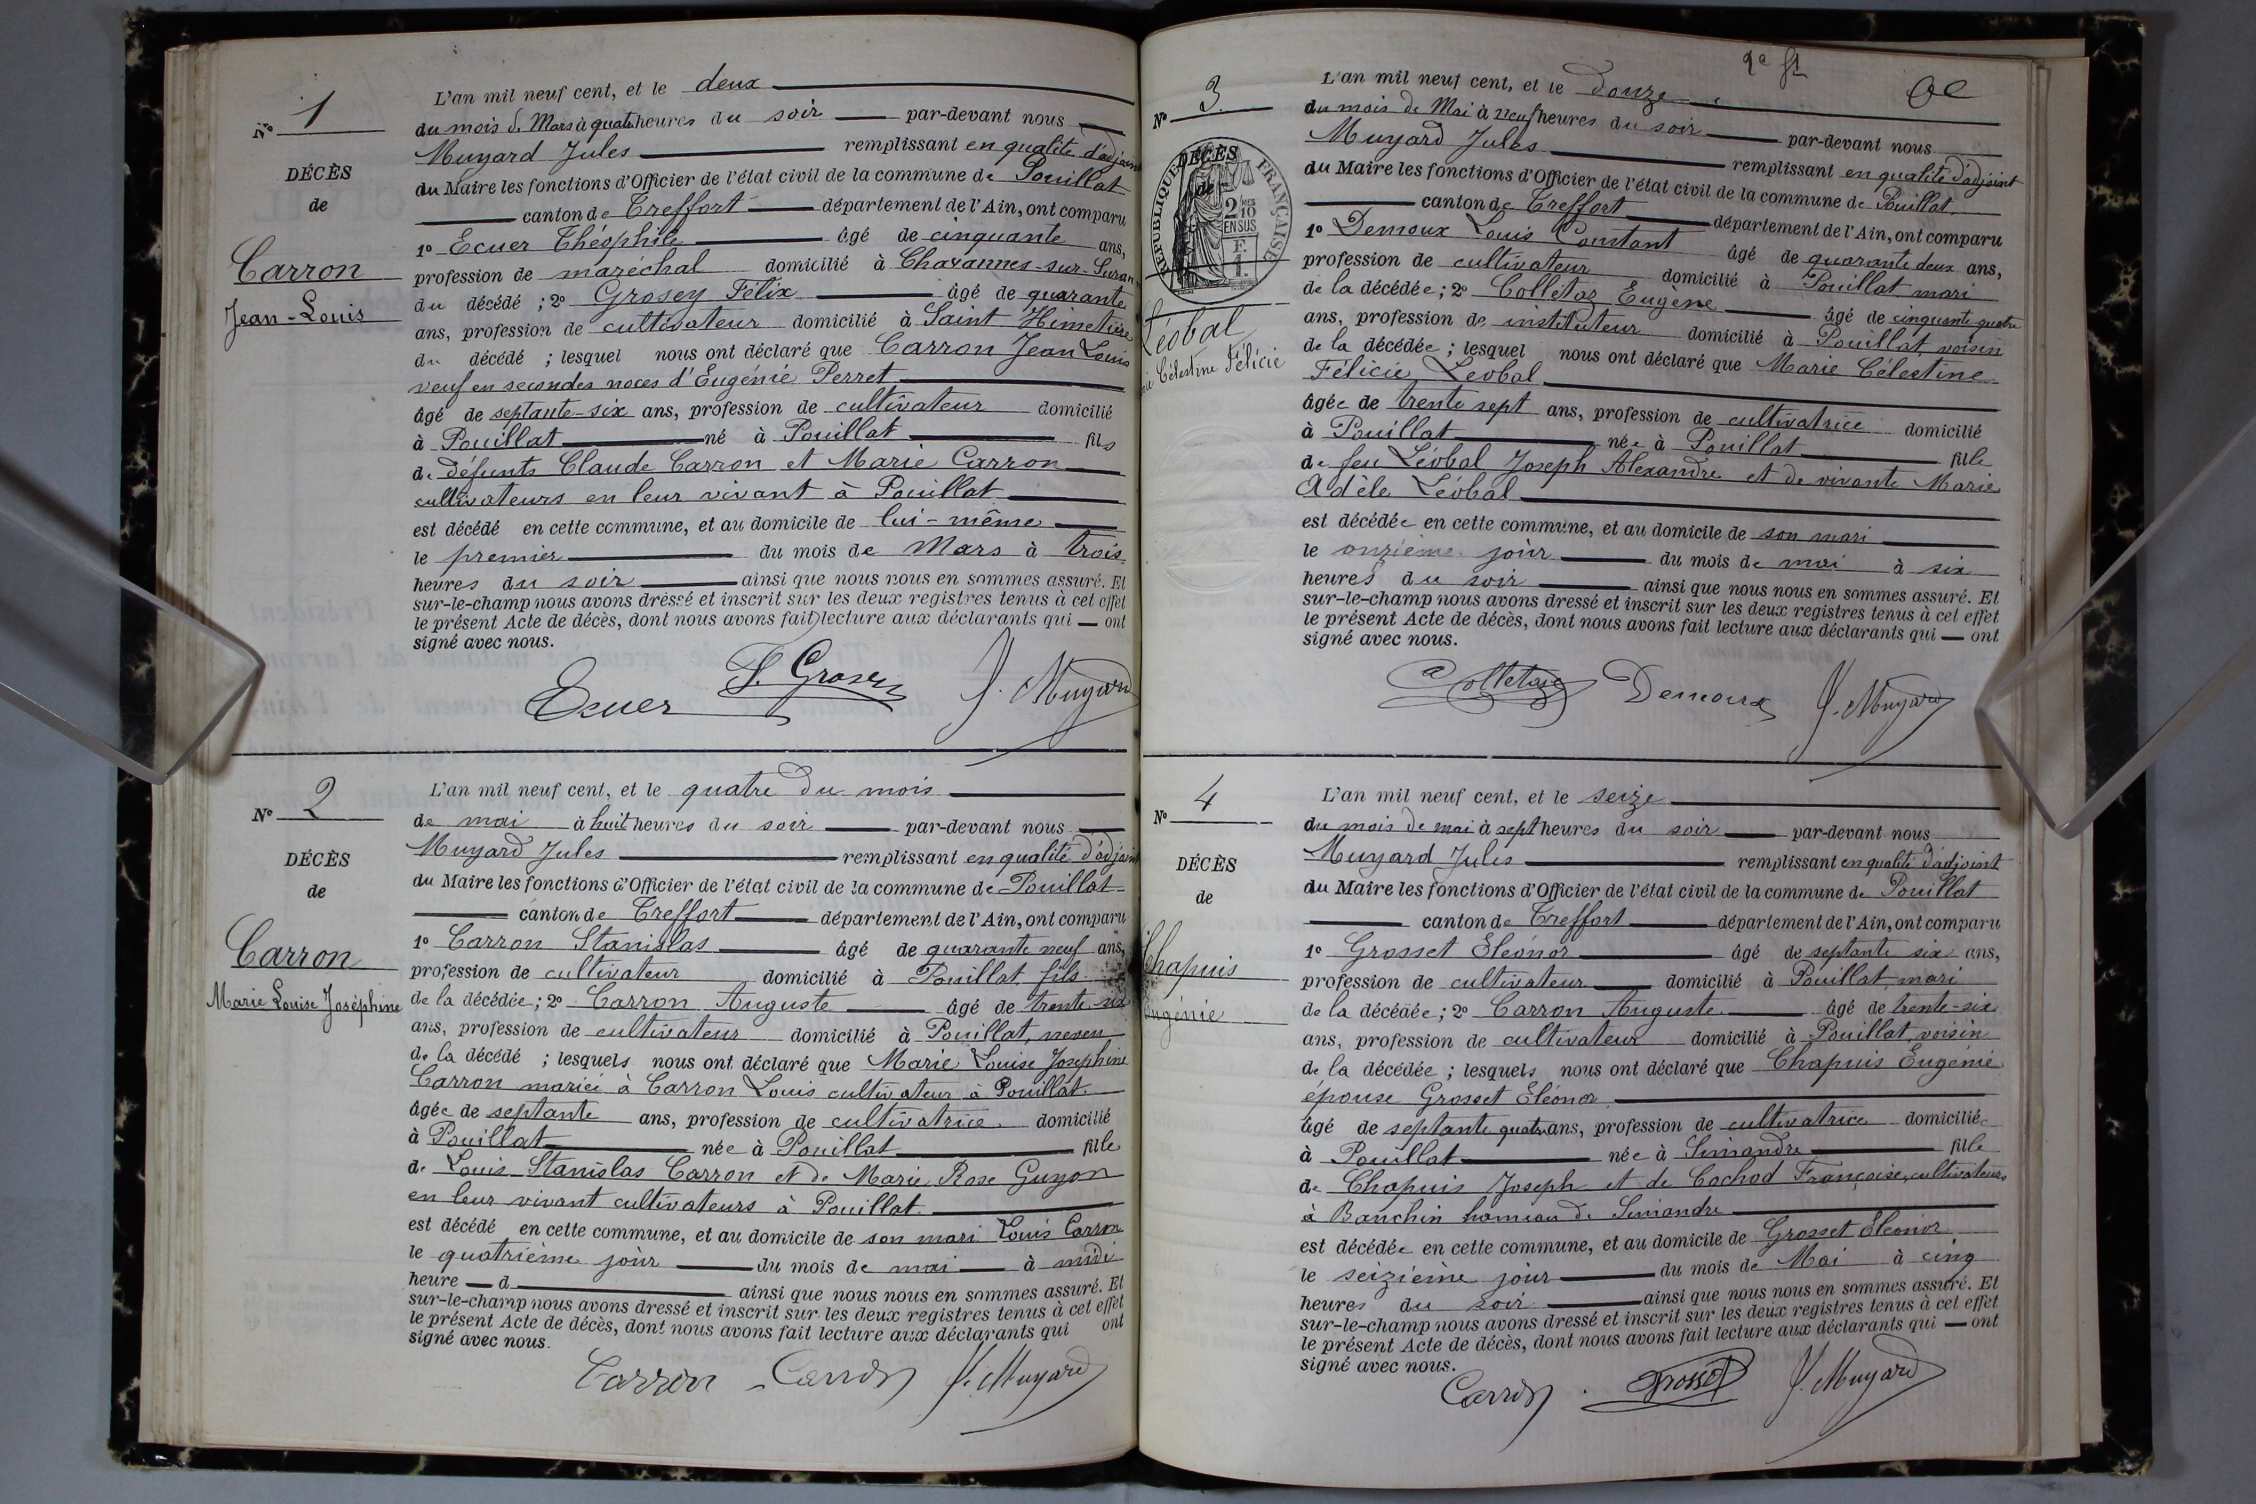 Nº 1
DÉCÈS
de
Carron
Jean-Louis
L'an mil neuf cent, et le deux
du mois de Mars à quatre heures du soir par-devant nous
Muyard Jules remplissant en qualité d'adjoint
du Maire les fonctions d'Officier de l'état civil de la commune de Pouillat
canton de Treffort département de l'Ain, ont comparu
1º Ecuer Théophile âgé de cinquante ans,
profession de maréchal domicilié à Chavannes-sur-Suran
du décédé ; 2º Grosey Félix âgé de quarante
ans, profession de cultivateur domicilié à Saint Himetière
du décédé ; lesquel nous ont déclaré que Carron Jean Louis
veuf en secondes noces d'Eugénie Perret
âgé de septante-six ans, profession de cultivateur domicilié
à Pouillat né à Pouillat fils
de défunts Claude Carron et Marie Carron
cultivateurs en leur vivant à Pouillat
est décédé en cette commune, et au domicile de lui-même
le premier du mois de Mars à trois
heures du soir ainsi que nous nous en sommes assuré. Et
sur-le-champ nous avons dressé et inscrit sur les deux registres tenus à cet effet
le présent Acte de décès, dont nous avons fait lecture aux déclarants qui ont
signé avec nous.
Ecuer F. Grosey J. Muyard
Nº 2
DÉCÈS
de
Carron
Marie Louise Joséphine
L'an mil neuf cent, et le quatre du mois
de mai à huit heures du soir par-devant nous
Muyard Jules remplissant en qualité d'adjoint
du Maire les fonctions d'Officier de l'état civil de la commune de Pouillat
canton de Treffort département de l'Ain, ont comparu
1º Carron Stanislas âgé de quarante neuf ans,
profession de cultivateur domicilié à Pouillat, fils
de la décédée ; 2º Carron Auguste âgé de trente-six
ans, profession de cultivateur domicilié à Pouillat, neveu
de la décédé ; lesquels nous ont déclaré que Marie Louise Josephine
Carron mariée à Carron Louis cultivateur à Pouillat
âgée de septante ans, profession de cultivatrice domicilié
à Pouillat née à Pouillat fille
de Louis Stanislas Carron et de Marie Rose Guyon
en leur vivant cultivateurs à Pouillat
est décédé en cette commune, et au domicile de son mari Louis Carron
le quatrième jour du mois de mai à midi
heure d ainsi que nous nous en sommes assuré. Et
sur-le-champ nous avons dressé et inscrit sur les deux registres tenus à cet effet
le présent Acte de décès, dont nous avons fait lecture aux déclarants qui ont
signé avec nous.
Carron Carron J. Muyard
Nº 3
DÉCÈS
de
RÉPUBLIQUE FRANÇAISE
2/10
EN SUS
F.
1.
Léobal
Célestine Félicie
L'an mil neuf cent, et le douze
du mois de Mai à neuf heures du soir par-devant nous
Muyard Jules remplissant en qualité d'adjoint
du Maire les fonctions d'Officier de l'état civil de la commune de Pouillat
canton de Treffort département de l'Ain, ont comparu
1º Demoux Louis Constant âgé de quarante deux ans,
profession de cultivateur domicilié à Pouillat, mari
de la décédée ; 2º Colletaz Eugène âgé de cinquante quatre
ans, profession de instituteur domicilié à Pouillat, voisin
de la décédée ; lesquel nous ont déclaré que Marie Célestine
Félicie Léobal
âgée de trente sept ans, profession de cultivatrice domicilié
à Pouillat née à Pouillat fille
de feu Léobal Joseph Alexandre et de vivante Marie
Adèle Léobal
est décédée en cette commune, et au domicile de son mari
le onzième jour du mois de mai à six
heures du soir ainsi que nous nous en sommes assuré. Et
sur-le-champ nous avons dressé et inscrit sur les deux registres tenus à cet effet
le présent Acte de décès, dont nous avons fait lecture aux déclarants qui ont
signé avec nous.
Colletaz Demoux J. Muyard
Nº 4
DÉCÈS
de
Chapuis
Eugénie
L'an mil neuf cent, et le seize
du mois de mai à sept heures du soir par-devant nous
Muyard Jules remplissant en qualité d'adjoint
du Maire les fonctions d'Officier de l'état civil de la commune de Pouillat
canton de Treffort département de l'Ain, ont comparu
1º Grosset Eléonor âgé de septante six ans,
profession de cultivateur domicilié à Pouillat, mari
de la décédée ; 2º Carron Auguste âgé de trente-six
ans, profession de cultivateur domicilié à Pouillat, voisin
de la décédée ; lesquels nous ont déclaré que Chapuis Eugénie
épouse Grosset Eléonor
âgé de septante quatre ans, profession de cultivatrice domiciliée
à Pouillat née à Simandre fille
de Chapuis Joseph et de Cochod Françoise, cultivateurs
à Banchin hameau de Simandre
est décédée en cette commune, et au domicile de Grosset Eléonor
le seizième jour du mois de Mai à cinq
heures du soir ainsi que nous nous en sommes assuré. Et
sur-le-champ nous avons dressé et inscrit sur les deux registres tenus à cet effet
le présent Acte de décès, dont nous avons fait lecture aux déclarants qui ont
signé avec nous.
Carron Grosset J. Muyard